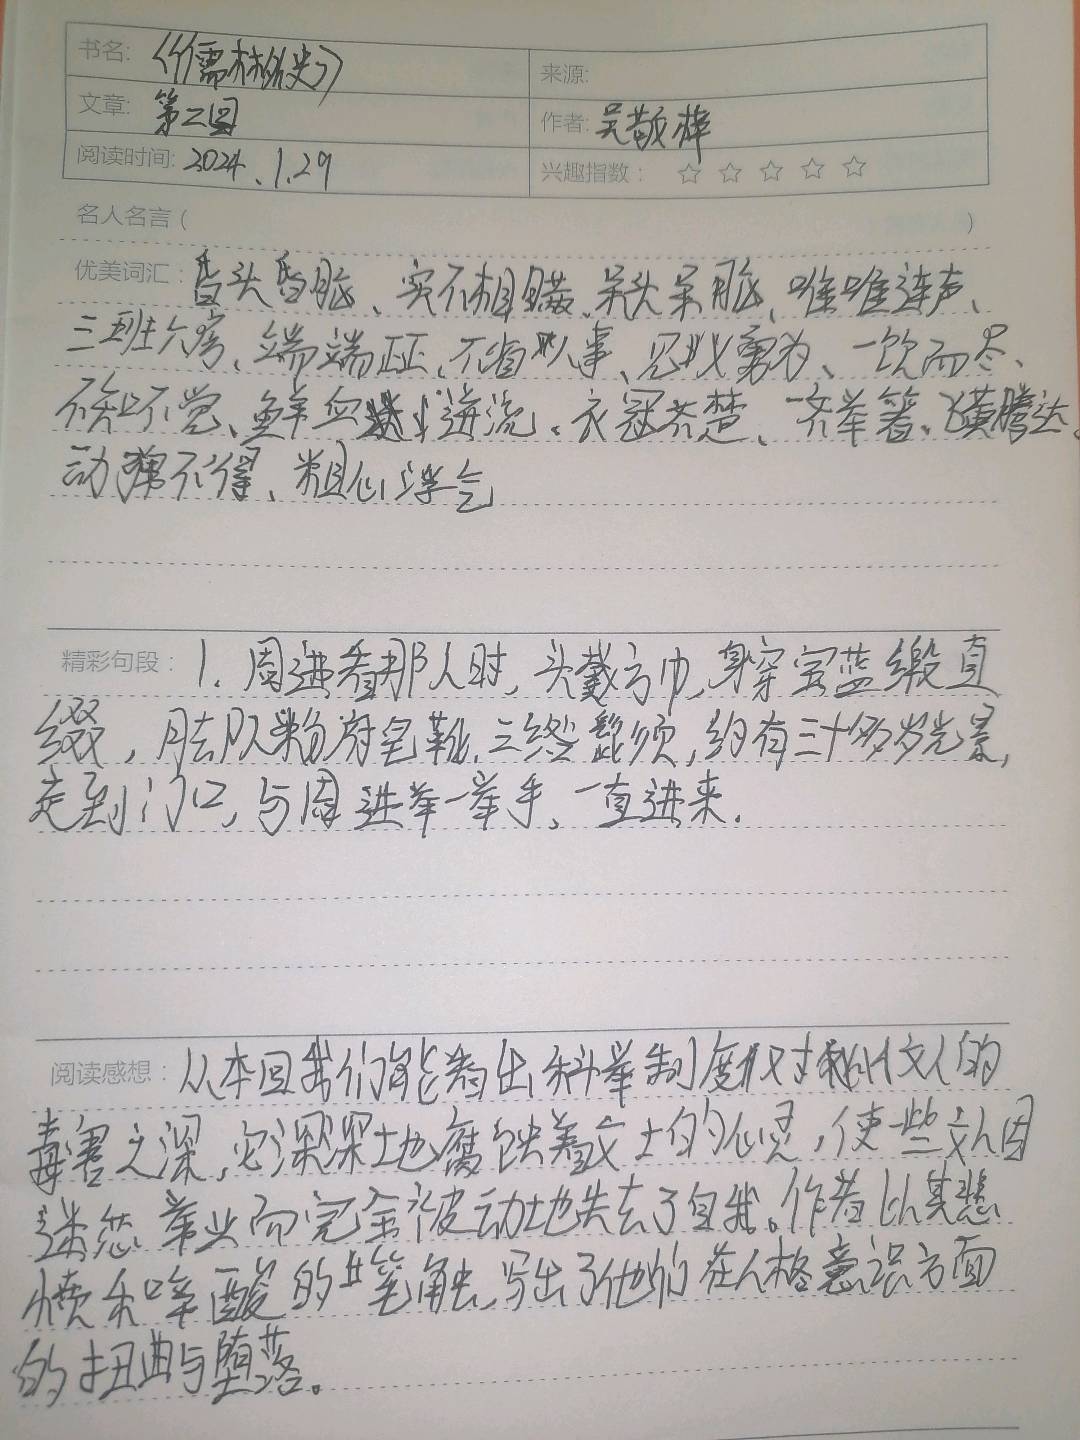 书名: 《儒林外史》
来源:
文章: 第二回
作者: 吴敬梓
阅读时间: 2024.1.29
兴趣指数: ☆ ☆ ☆ ☆ ☆
名人名言( )
优美词汇: 昏头昏脑、实不相瞒、呆头呆脑、唯唯连声、
三班六房、端端正正、不省人事、见义勇为、一饮而尽、
不知不觉、鲜血迸流、衣冠齐楚、齐举箸、飞黄腾达、
动弹不得、粗心浮气
精彩句段: 1. 周进看那人时,头戴方巾,身穿宝蓝缎直
缀,脚下粉底皂靴,三绺髭须,约有三十多岁光景,
走到门口,与周进举一举手,一直进来.
阅读感想: 从本回我们能看出科举制度对文人的
毒害之深,它深深地腐蚀着文士的心灵,使一些文人因
迷恋举业而完全被动地失去了自我。作者以其悲
愤和辛酸的笔触,写出了他们在人格意识方面
的扭曲与堕落。